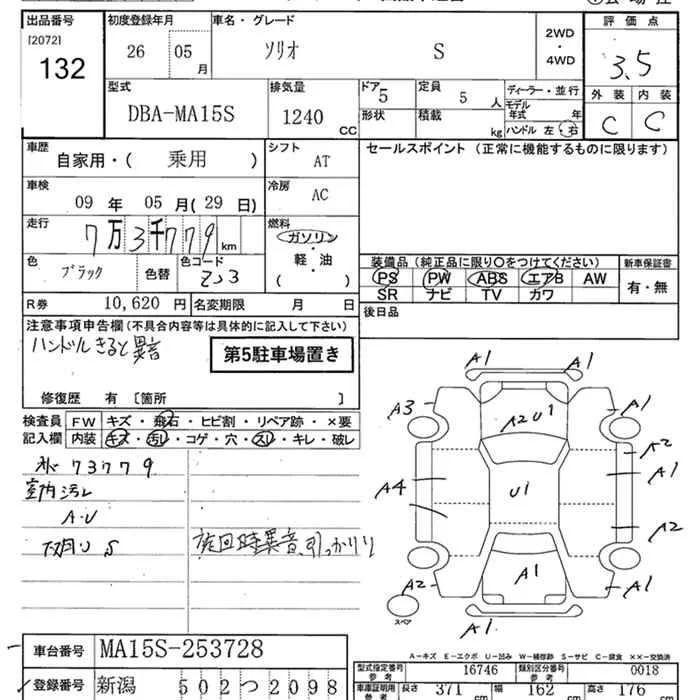 出品番号 初度登録年月 車名・グレード 評価点
[2072] 132
26 05月 ソリオ S 2WD・4WD 3.5
型式 排気量 ドア 定員 ディーラー・並行 外装 内装
DBA-MA15S 1240CC 5 5人 モデル年式 年 C C
形状 積載 kg ハンドル 左・右
車歴 自家用・(乗用) シフト AT セールスポイント(正常に機能するものに限ります)
車検 09年 05月(29日) 冷房 AC
走行 7万3千779km 燃料 ガソリン・軽・油 ( )
色 ブラック 色替 色コード ZJ3
装備品(純正品に限り○をつけてください) 新車保証書
PS PW ABS エアB AW 有・無
SR ナビ TV カワ
R券 10,620円 名変期限 月 日 後日品
注意事項申告欄(不具合内容等は具体的に記入して下さい)
ハンドルきると異音
第5駐車場置き
修復歴 有〔箇所 〕
検査員記入欄 FW キズ・飛石・ヒビ割・リペア跡・×要
内装 キズ・汚レ・コゲ・穴・スレ・キレ・破レ
73779
室内汚レ
A・U
S
旋回時異音、引っかかり
A1 A1
A3 A2U1 A1
A2
A4 U1 A1
A2
A2 A1 A1
スペア A1
A-キズ E-エクボ U-凹み W-補修跡 S-サビ C-腐食 ××-交換済
車台番号 MA15S-253728
型式指定番号 参考 16746 類別区分番号 参考 0018
登録番号 新潟 502つ2098
車庫証明用 参考 長さ 371cm 幅 162cm 高さ 176cm